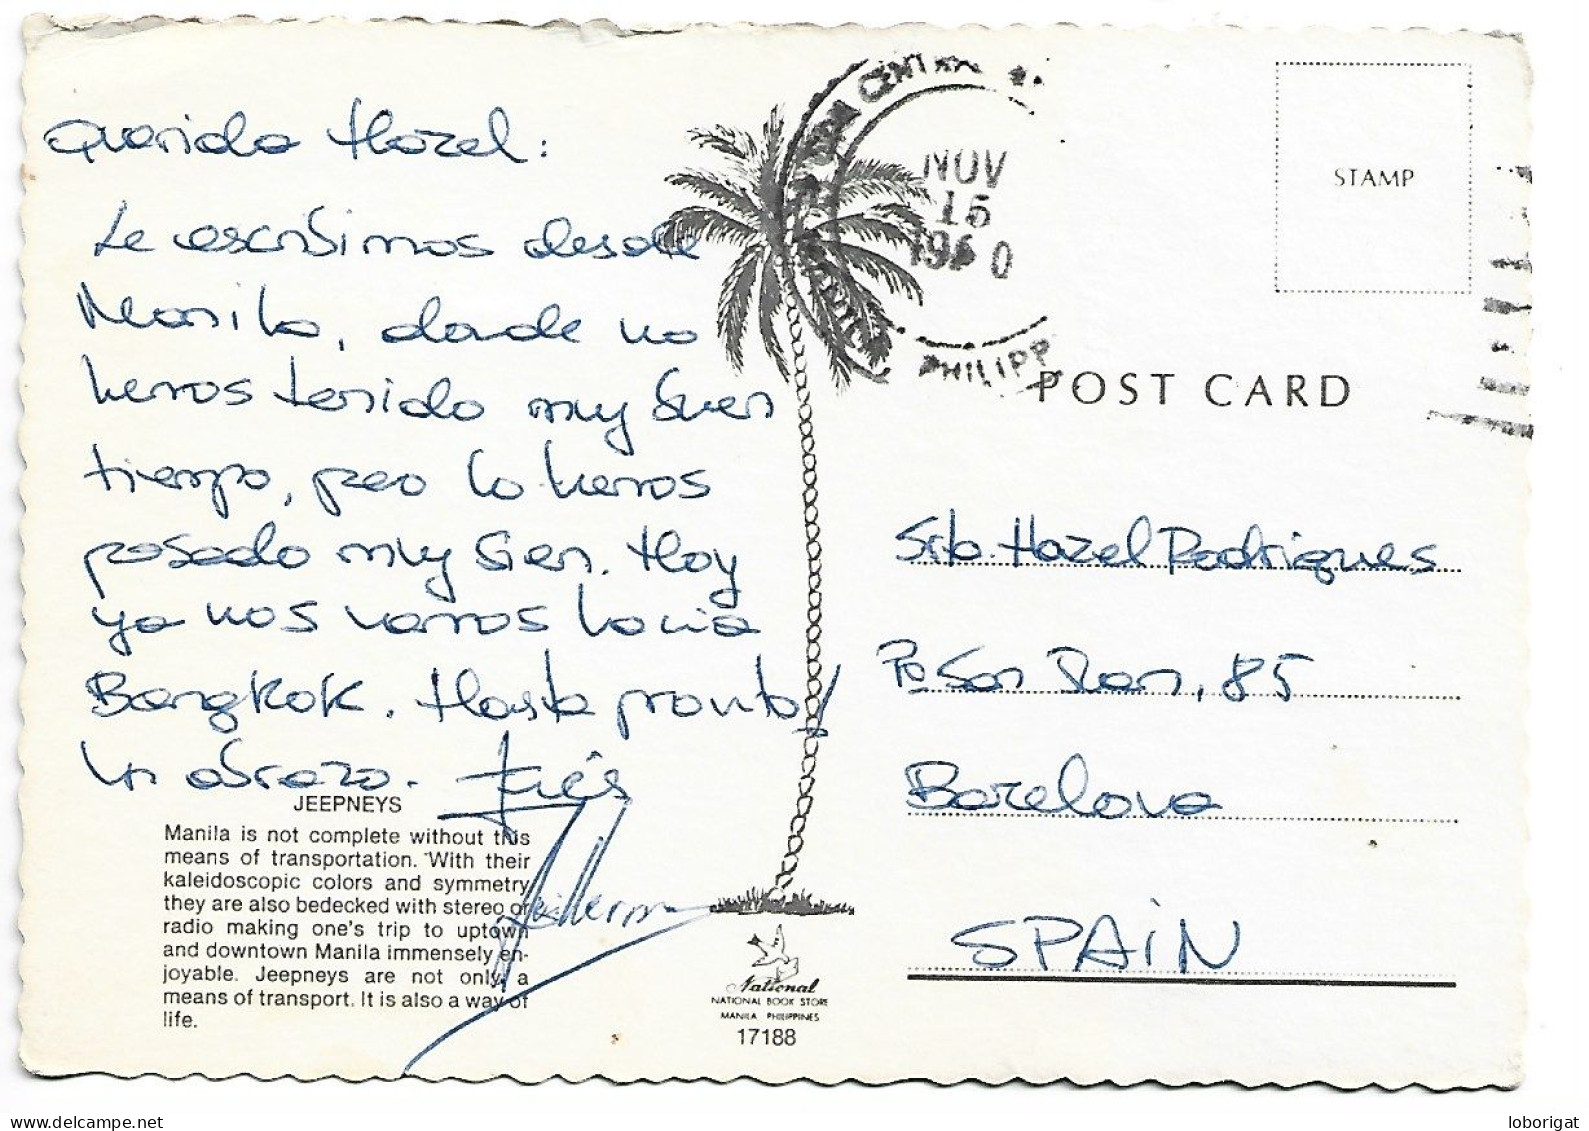 Querida Hazel:
Te escribimos desde
Manila, donde no
hemos tenido muy buen
tiempo, pero lo hemos
pasado muy bien. Hoy
ya nos vamos hacia
Bangkok. Hasta pronto!
Un abrazo. Inés
Guillermo
JEEPNEYS
Manila is not complete without this
means of transportation. With their
kaleidoscopic colors and symmetry
they are also bedecked with stereo or
radio making one's trip to uptown
and downtown Manila immensely en-
joyable. Jeepneys are not only a
means of transport. It is also a way of
life.
National
NATIONAL BOOK STORE
MANILA PHILIPPINES
17188
NOV
15
PHILIPP
STAMP
POST CARD
Srta. Hazel Rodrigues
Pº San Juan, 85
Barcelona
SPAIN
www.delcampe.net
loborigat